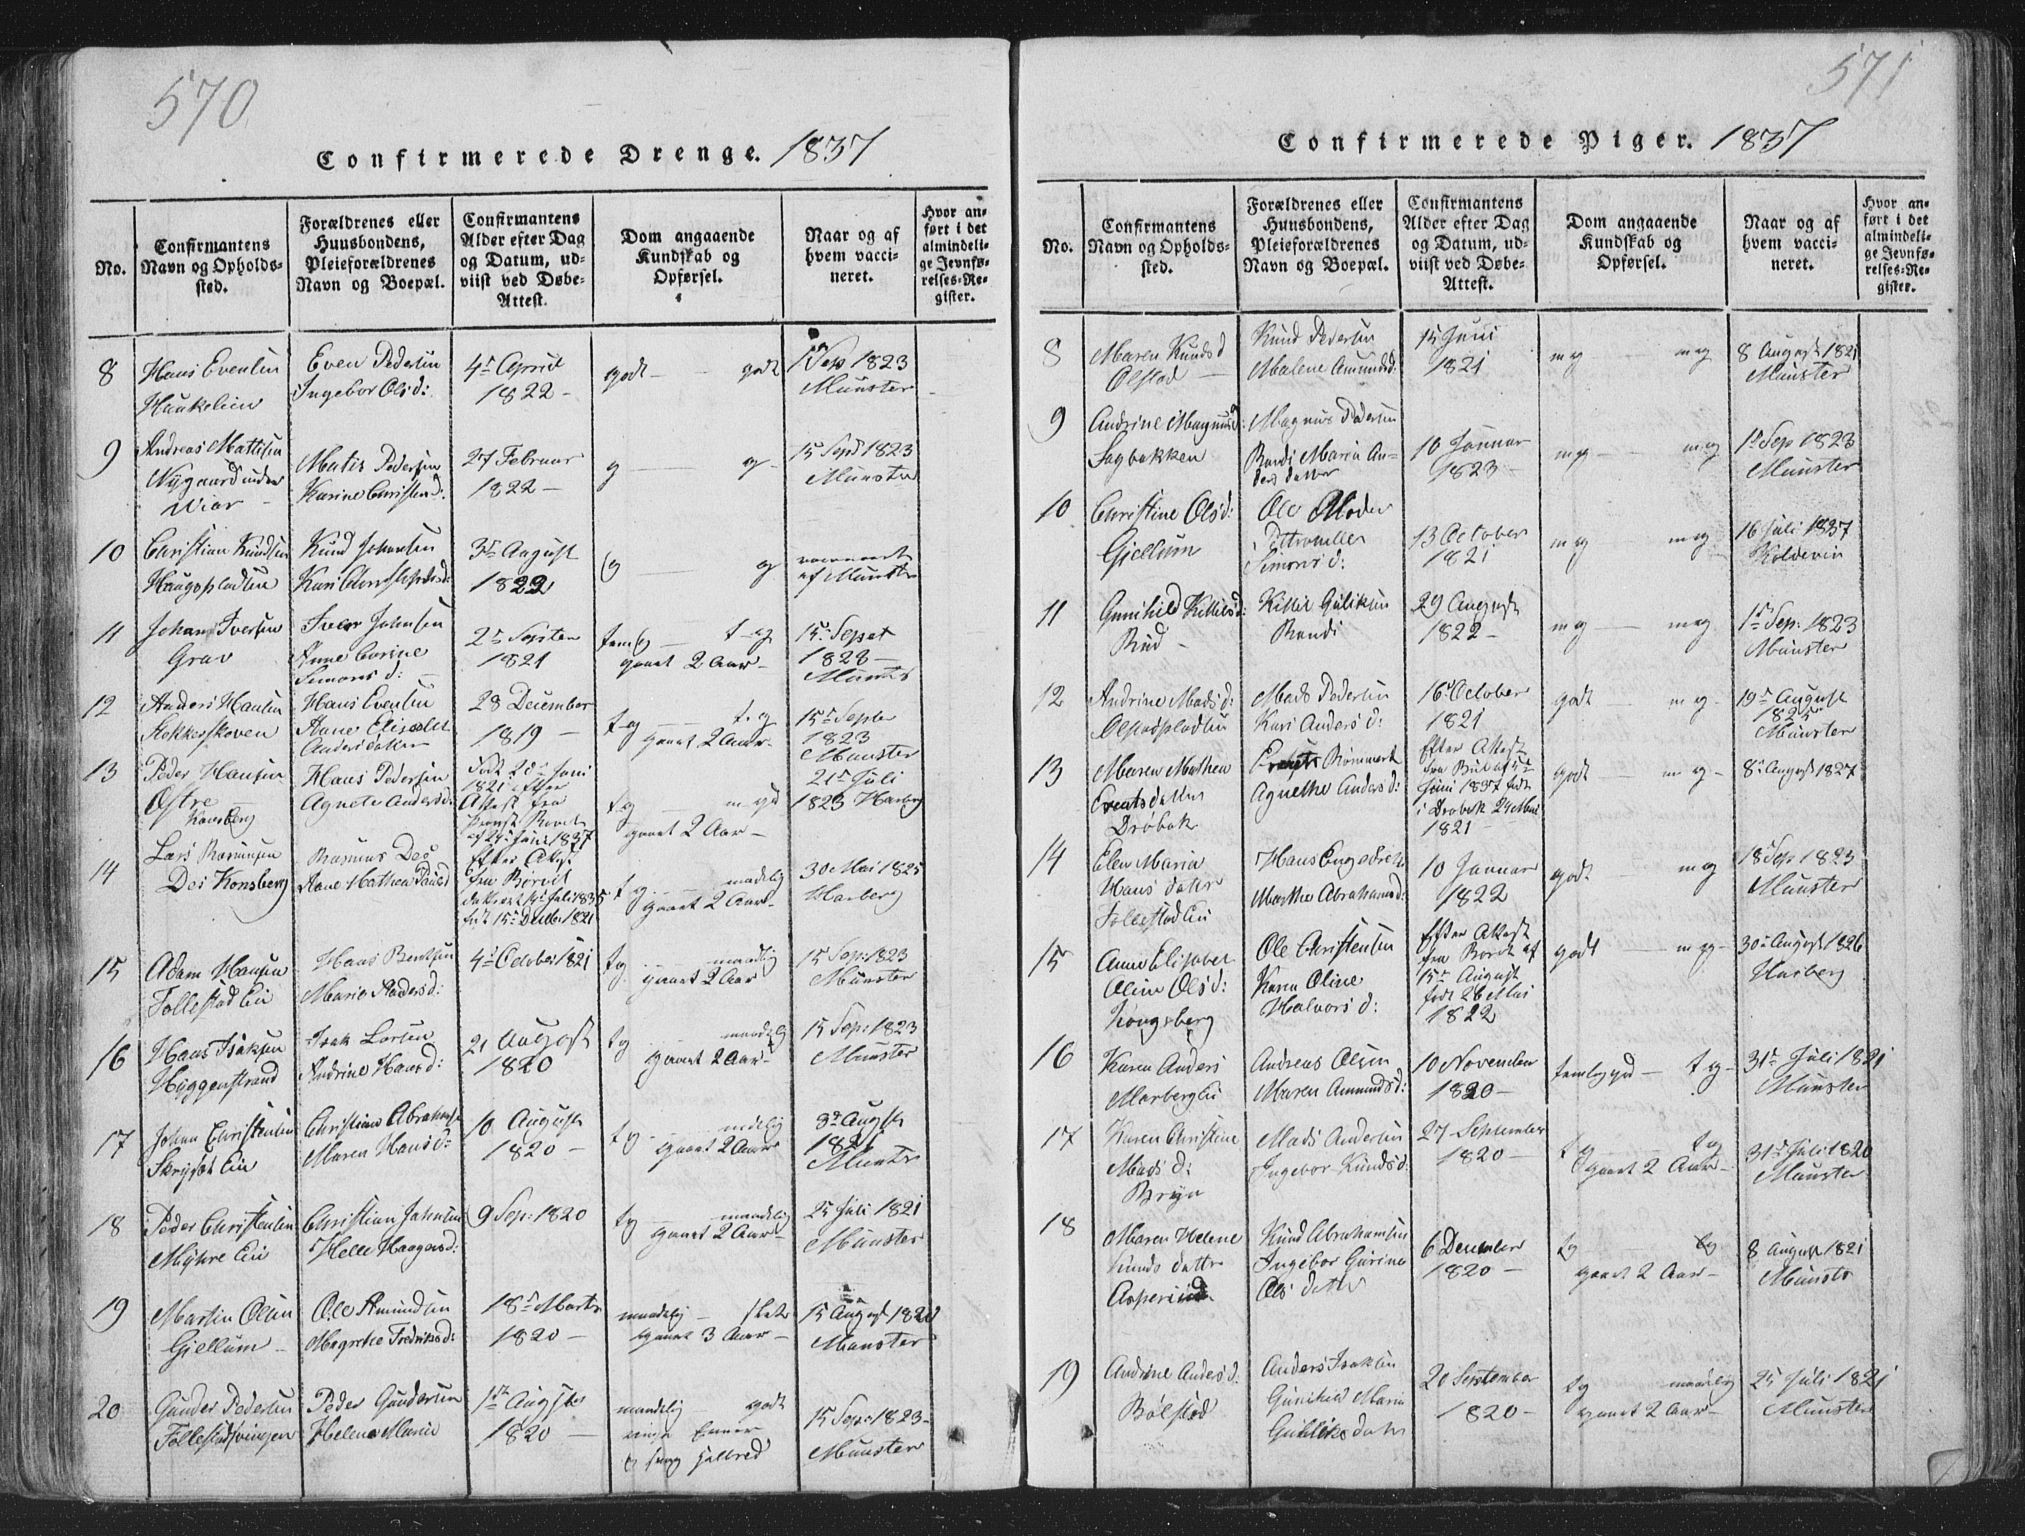 570
Confirmerede Drenge. 1837
No.
Confirmantens
Navn og Opholds-
sted.
Forældrenes eller
Huusbondens,
Pleieforældrenes
Navn og Boepæl.
Confirmantens
Alder efter Dag
og Datum, ud-
viist ved Døbe-
Attest.
Dom angaaende
Kundskab og
Opførsel.
Naar og af
hvem vacci-
neret.
Hvor an-
ført i det
almindeli-
ge Jevnfø-
relses-Re-
gister.
8
Hans Evensen
Haukelien
Even Pedersen
Ingebor Olsd:
4de April
1822 -
godt - godt
Sep 1823
Münster
9
Andreas Mattisen
Nygaard under
Viar -
Matis Pedersen
Karine Christensd:
27 Februar
1822 -
g - g -
15 Sept 1823
Münster
10
Christian Knudsen
Haugspladsen
Knud Johansen
Kari
3de August
1822
g - g
af Münster
11
Johan Iversen
Grav
Iver Johnsen
Anne Corine
Simonsd: -
2den Septem
1821
t - g
gaaet 2 Aar -
15 Septr
1823 -
Münster
12
Anders Hansen
Stokkerskoven
Hans Evensen
Anne Elisabet
Andersdatter
28 December
1819 -
t. g - t. g
gaaet 2 Aar -
15de Septbr
1823
Münster
13
Peder Hansen
Østre
Konsberg
Hans Pedersen
Agnete Andersd:
1821 efter
Attest fra
t g - m g
gaaet 2 Aar -
21de Juli
1823 Harberg
14
Lars Rasmusen
Dei Konsberg
Rasmus Dei
Anne Mathea
Efter Attest
fra Børvet
født 15de Decbr 1821
t g - maadelig
gaaet 2 Aar
30 Mai 1825
Harberg
15
Adam Hansen
Follestad Eie
Hans Bentsen
Marie Andersd:
4de October 1821
tg. - maadelig
gaaet 2 Aar
15 Sep: 1823
Münster
16
Hans Isaksen
Høggenstrand
Isak Larsen
Andrine Hansd:
21 August
1820
tg - maadelig
gaaet 2 Aar -
15 Sep: 1823
Münster
17
Johan Christensen
Christian Abrahms
Maren Hansd:
10 August
1820 -
tg. - mdelig
gaaet 2 Aar
3de Augst
1821
Munster
18
Peder Christensen
Myhre Eie
Christian Johnsen
Helle Haagensd:
9 Sep: 1820
tg - maadelig
gaaet 2 Aar -
25 Juli 1821
Münster
19
Martin Olsen
Gjellum -
Ole Amundsen
Magrethe Fredriksd:
18de Marts
1820 -
maadelig - slet
gaaet 3 Aar -
15 August 1820
Münster
20
Gunder Pedersen
Follestadsvingen
Peder Gundersen
Helene Marie
1st Augst
1820 -
maadelig godt
15 Sep: 1823 -
Münster
571
Confirmerede Piger. 1837
No.
Confirmantens
Navn og Opholds-
sted.
Forældrenes eller
Huusbondens,
Pleieforældrenes
Navn og Boepæl.
Confirmantens
Alder efter Dag
og Datum, ud-
viist ved Døbe-
Attest.
Dom angaaende
Kundskab og
Opførsel.
Naar og af
hvem vacci-
neret.
Hvor an-
ført i det
almindeli-
ge Jevnfø-
relses-Re-
gister.
8
Maren Knudsd
Olstad -
Knud Pedersen
Malene Amundsd:
15 Juni
1821
mg - mg
8 August 1821
Münster
9
Andrine Magnusd:
Sagbakken
Magnus Pedersen
Randi Maria An-
dersdatter
10 Januar
1823 -
mg - mg
1de Sep 1823
Münster
10
Christine Olsd:
Gjellum
Ole
Petronelle
Simonsd:
13 October
1821
mg - mg
16 Juli 1837
Koldevin
11
Gunhild Kittilsd:
Rud -
Kittil Guliksen
Randi
29 August
1822 -
mg - mg
1ste Sep: 1823
Münster
12
Andrine Madsd:
Olstadpladsen
Mads Pedersen
Kari Andersd:
16 October
1821
godt - mg -
19de August
1825
Münster
13
Maren Mathea
Drøbak
Agnethe Andersd:
Efter Attest
Juni 1837 født
i Drøbak 24 Mai
1821 -
godt - mg -
8de August 1827
14
Elen Maria
Hansdatter
Follestad Eie
Hans Engebreths
Marthe Abrahamsd:
10 Januar
1822
godt - mg
18de Sep 1823
Münster
15
Anne Elisabet
Oline Olsd:
Kongsberg
Ole Christensen
Karen Oline
Halvorsd:
Efter Attest
fra Børdt af
15de August
født 26 Mai
1822
godt - mg -
30te August 1826
Harberg
16
Karen Anders
Morberg Eie
Andreas Olsen
Maren Amundsd:
10 November
1820 -
temlig god - t g -
31te Juli 1821
Münster
17
Karen Christine
Madsd:
Bryn
Mads Andersen
Ingebor Knudsd:
27 September
1820 -
tg - tg
gaaet 2 Aar -
31te Juli 1820
Münster
18
Maren Helene
Knudsdatter
Asperud
Knud Abrahamsen
Ingebor Gurine
Olsdatter
6 December
1820 -
tg - tg
gaaet 2 Aar -
8 August 1821
Münster
19
Andrine Andersd:
Bølstad
Anders Isaksen
Gunhild Maria
Gulliksdatter
20 September
1820 -
tg - maadelig
gaaet 2 Aar -
25 Juli 1821
Münster